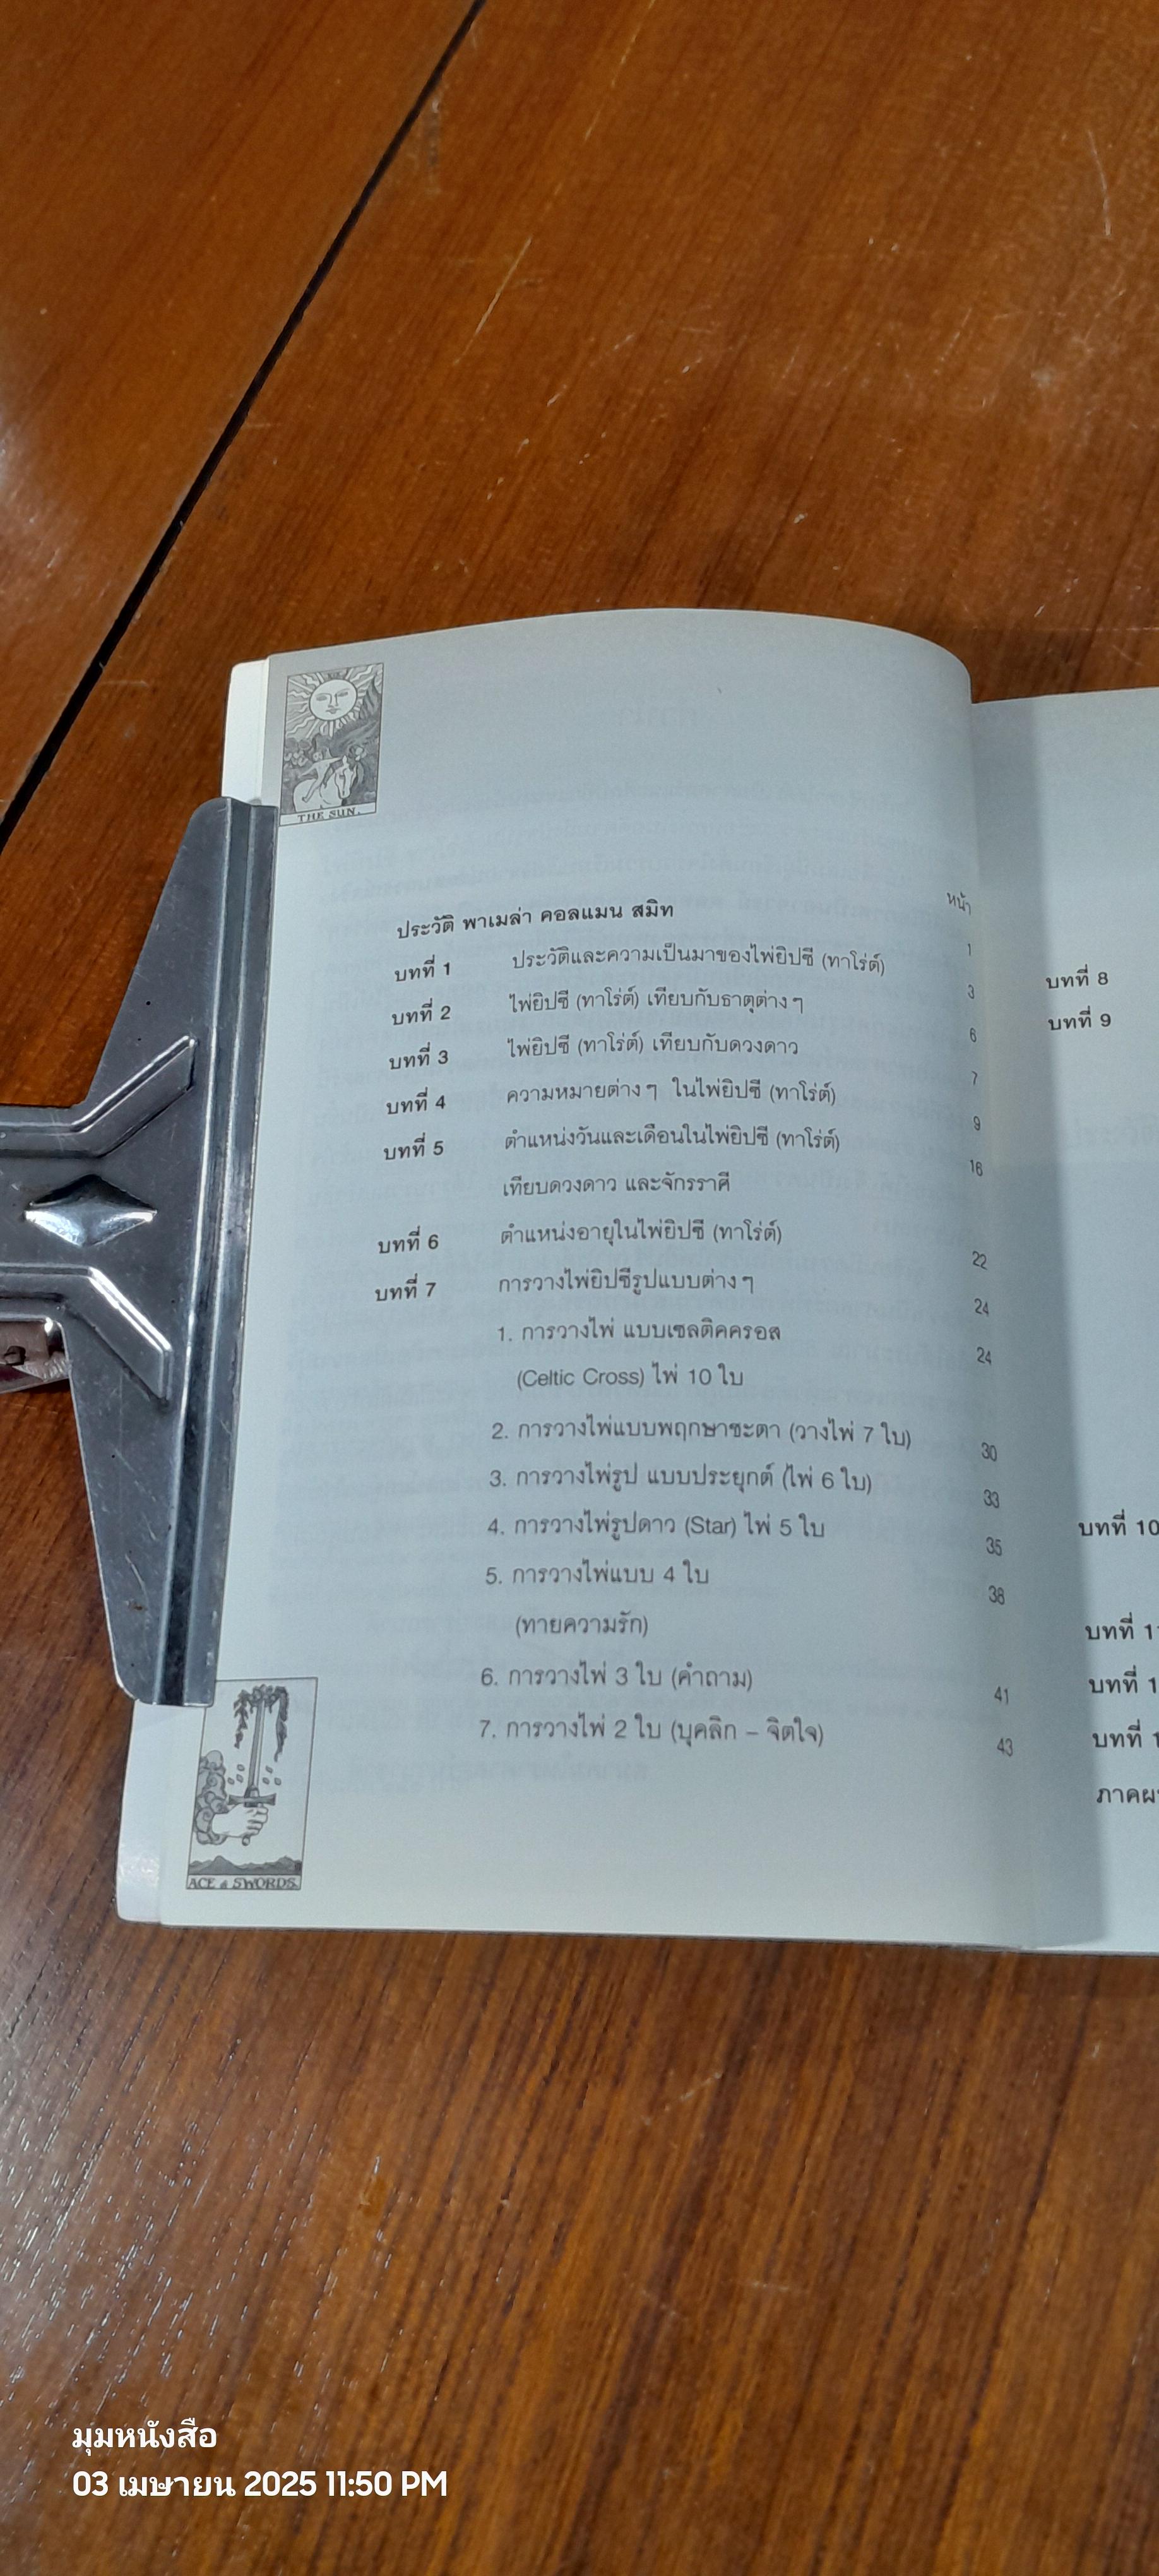 THE SUN.
หน้า
ประวัติ พาเมล่า คอลแมน สมิท 1
บทที่ 1 ประวัติและความเป็นมาของไพ่ยิปซี (ทาโร่ต์) 3
บทที่ 2 ไพ่ยิปซี (ทาโร่ต์) เทียบกับธาตุต่างๆ 6
บทที่ 3 ไพ่ยิปซี (ทาโร่ต์) เทียบกับดวงดาว 7
บทที่ 4 ความหมายต่างๆ ในไพ่ยิปซี (ทาโร่ต์) 9
บทที่ 5 ตำแหน่งวันและเดือนในไพ่ยิปซี (ทาโร่ต์) 16
เทียบดวงดาว และจักรราศี
บทที่ 6 ตำแหน่งอายุในไพ่ยิปซี (ทาโร่ต์) 22
บทที่ 7 การวางไพ่ยิปซีรูปแบบต่างๆ 24
1. การวางไพ่ แบบเซลติคครอส 24
(Celtic Cross) ไพ่ 10 ใบ
2. การวางไพ่แบบพฤกษาชะตา (วางไพ่ 7 ใบ) 30
3. การวางไพ่รูป แบบประยุกต์ (ไพ่ 6 ใบ) 33
4. การวางไพ่รูปดาว (Star) ไพ่ 5 ใบ 35
5. การวางไพ่แบบ 4 ใบ 38
(ทายความรัก)
6. การวางไพ่ 3 ใบ (คำถาม) 41
7. การวางไพ่ 2 ใบ (บุคลิก – จิตใจ) 43
ACE of SWORDS.
บทที่ 8
บทที่ 9
บทที่ 10
บทที่ 1
บทที่ 1
บทที่ 1
ภาคผ
มุมหนังสือ
03 เมษายน 2025 11:50 PM